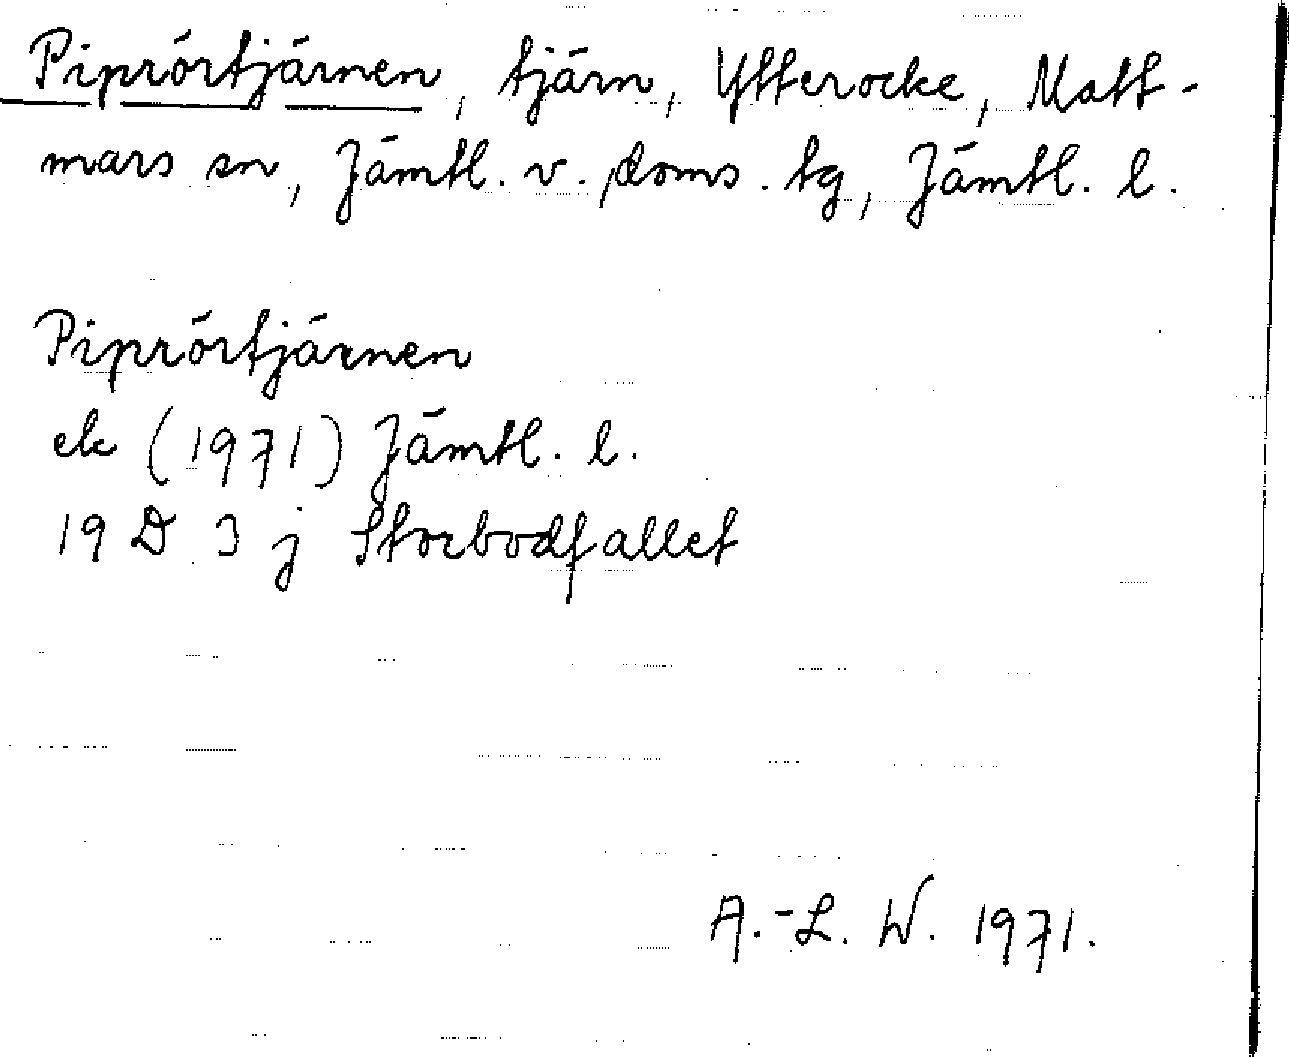 Piprörtjärnen, tjärn, Ytterocke, Matt-
mars sn, Jämtl. v. doms. tg, Jämtl. l.
Piprörtjärnen
ek (1971) Jämtl. l.
19 D 3 j Storbodfallet
A.-L. W. 1971.